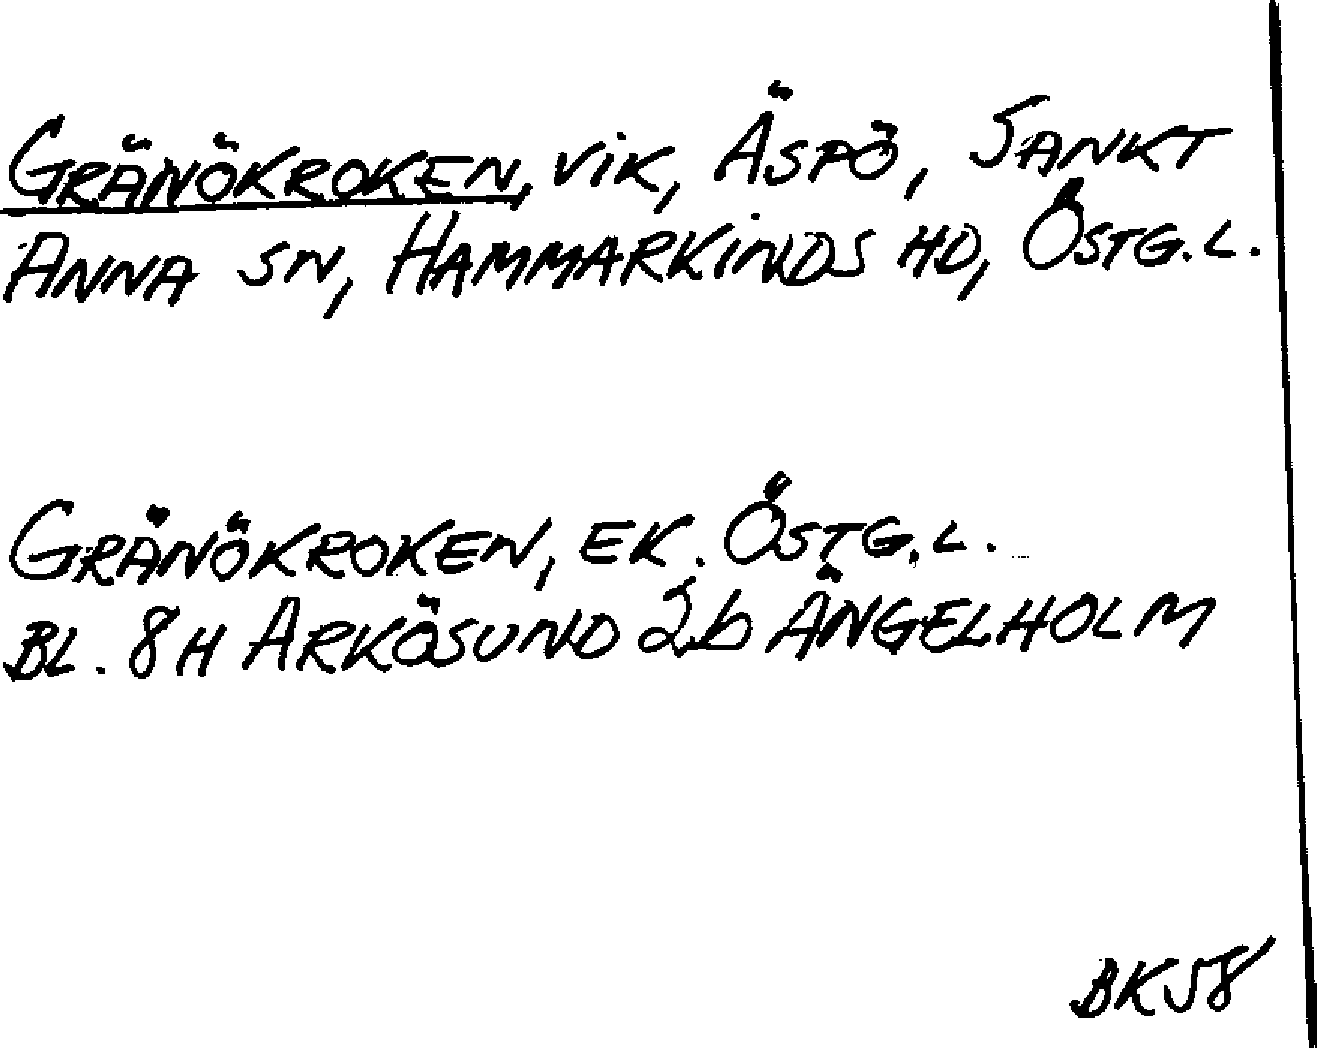 GRÄNÖKROKEN, VIK, ÄSPÖ, SANKT
ANNA SN, HAMMARKINDS HD, ÖSTG.L.
GRÄNÖKROKEN, EK. ÖSTG.L.
BL. 8H ARKÖSUND 2b ÄNGELHOLM
BK58